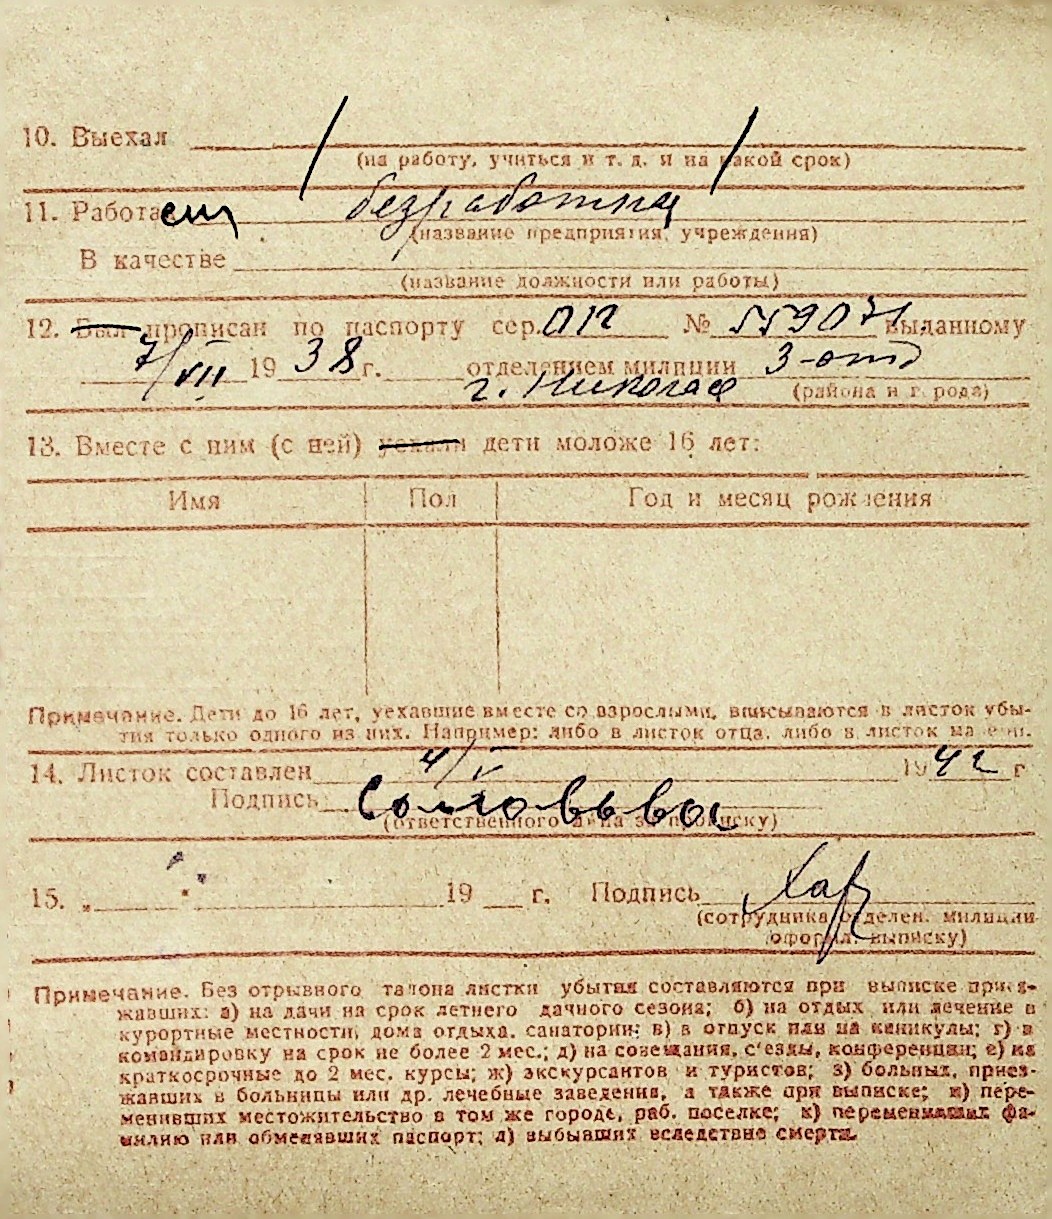 10. Выехал
(на работу, учиться и т. д. и на какой срок)
11. Работает безработная
(название предприятия, учреждения)
В качестве
(название должности или работы)
12. Был прописан по паспорту сер. № 559071 выданному
7/VII 1938 г. отделением милиции 3-отд
г. Николаев (района и города)
13. Вместе с ним (с ней) уехали дети моложе 16 лет:
Имя Пол Год и месяц рождения
Примечание. Дети до 16 лет, уехавшие вместе со взрослыми, вписываются в листок убы-
тия только одного из них. Например: либо в листок отца, либо в листок матери.
14. Листок составлен 4/V 1942 г
Подпись Соловьева
(ответственного лица за прописку)
15. „ " 19 г. Подпись
(сотрудника отделен. милиции
оформ. выписку)
Примечание. Без отрывного талона листки убытия составляются при выписке приез-
жавших: а) на дачи на срок летнего дачного сезона; б) на отдых или лечение в
курортные местности, дома отдыха, санатории; в) в отпуск или на каникулы; г) в
командировку на срок не более 2 мес.; д) на совещания, с'езды, конференции; е) на
краткосрочные до 2 мес. курсы; ж) экскурсантов и туристов; з) больных, приез-
жавших в больницы или др. лечебные заведения, а также при выписке; и) пере-
менивших местожительство в том же городе, раб. поселке; к) переменивших фа-
милию или обменявших паспорт; л) выбывших вследствие смерти.